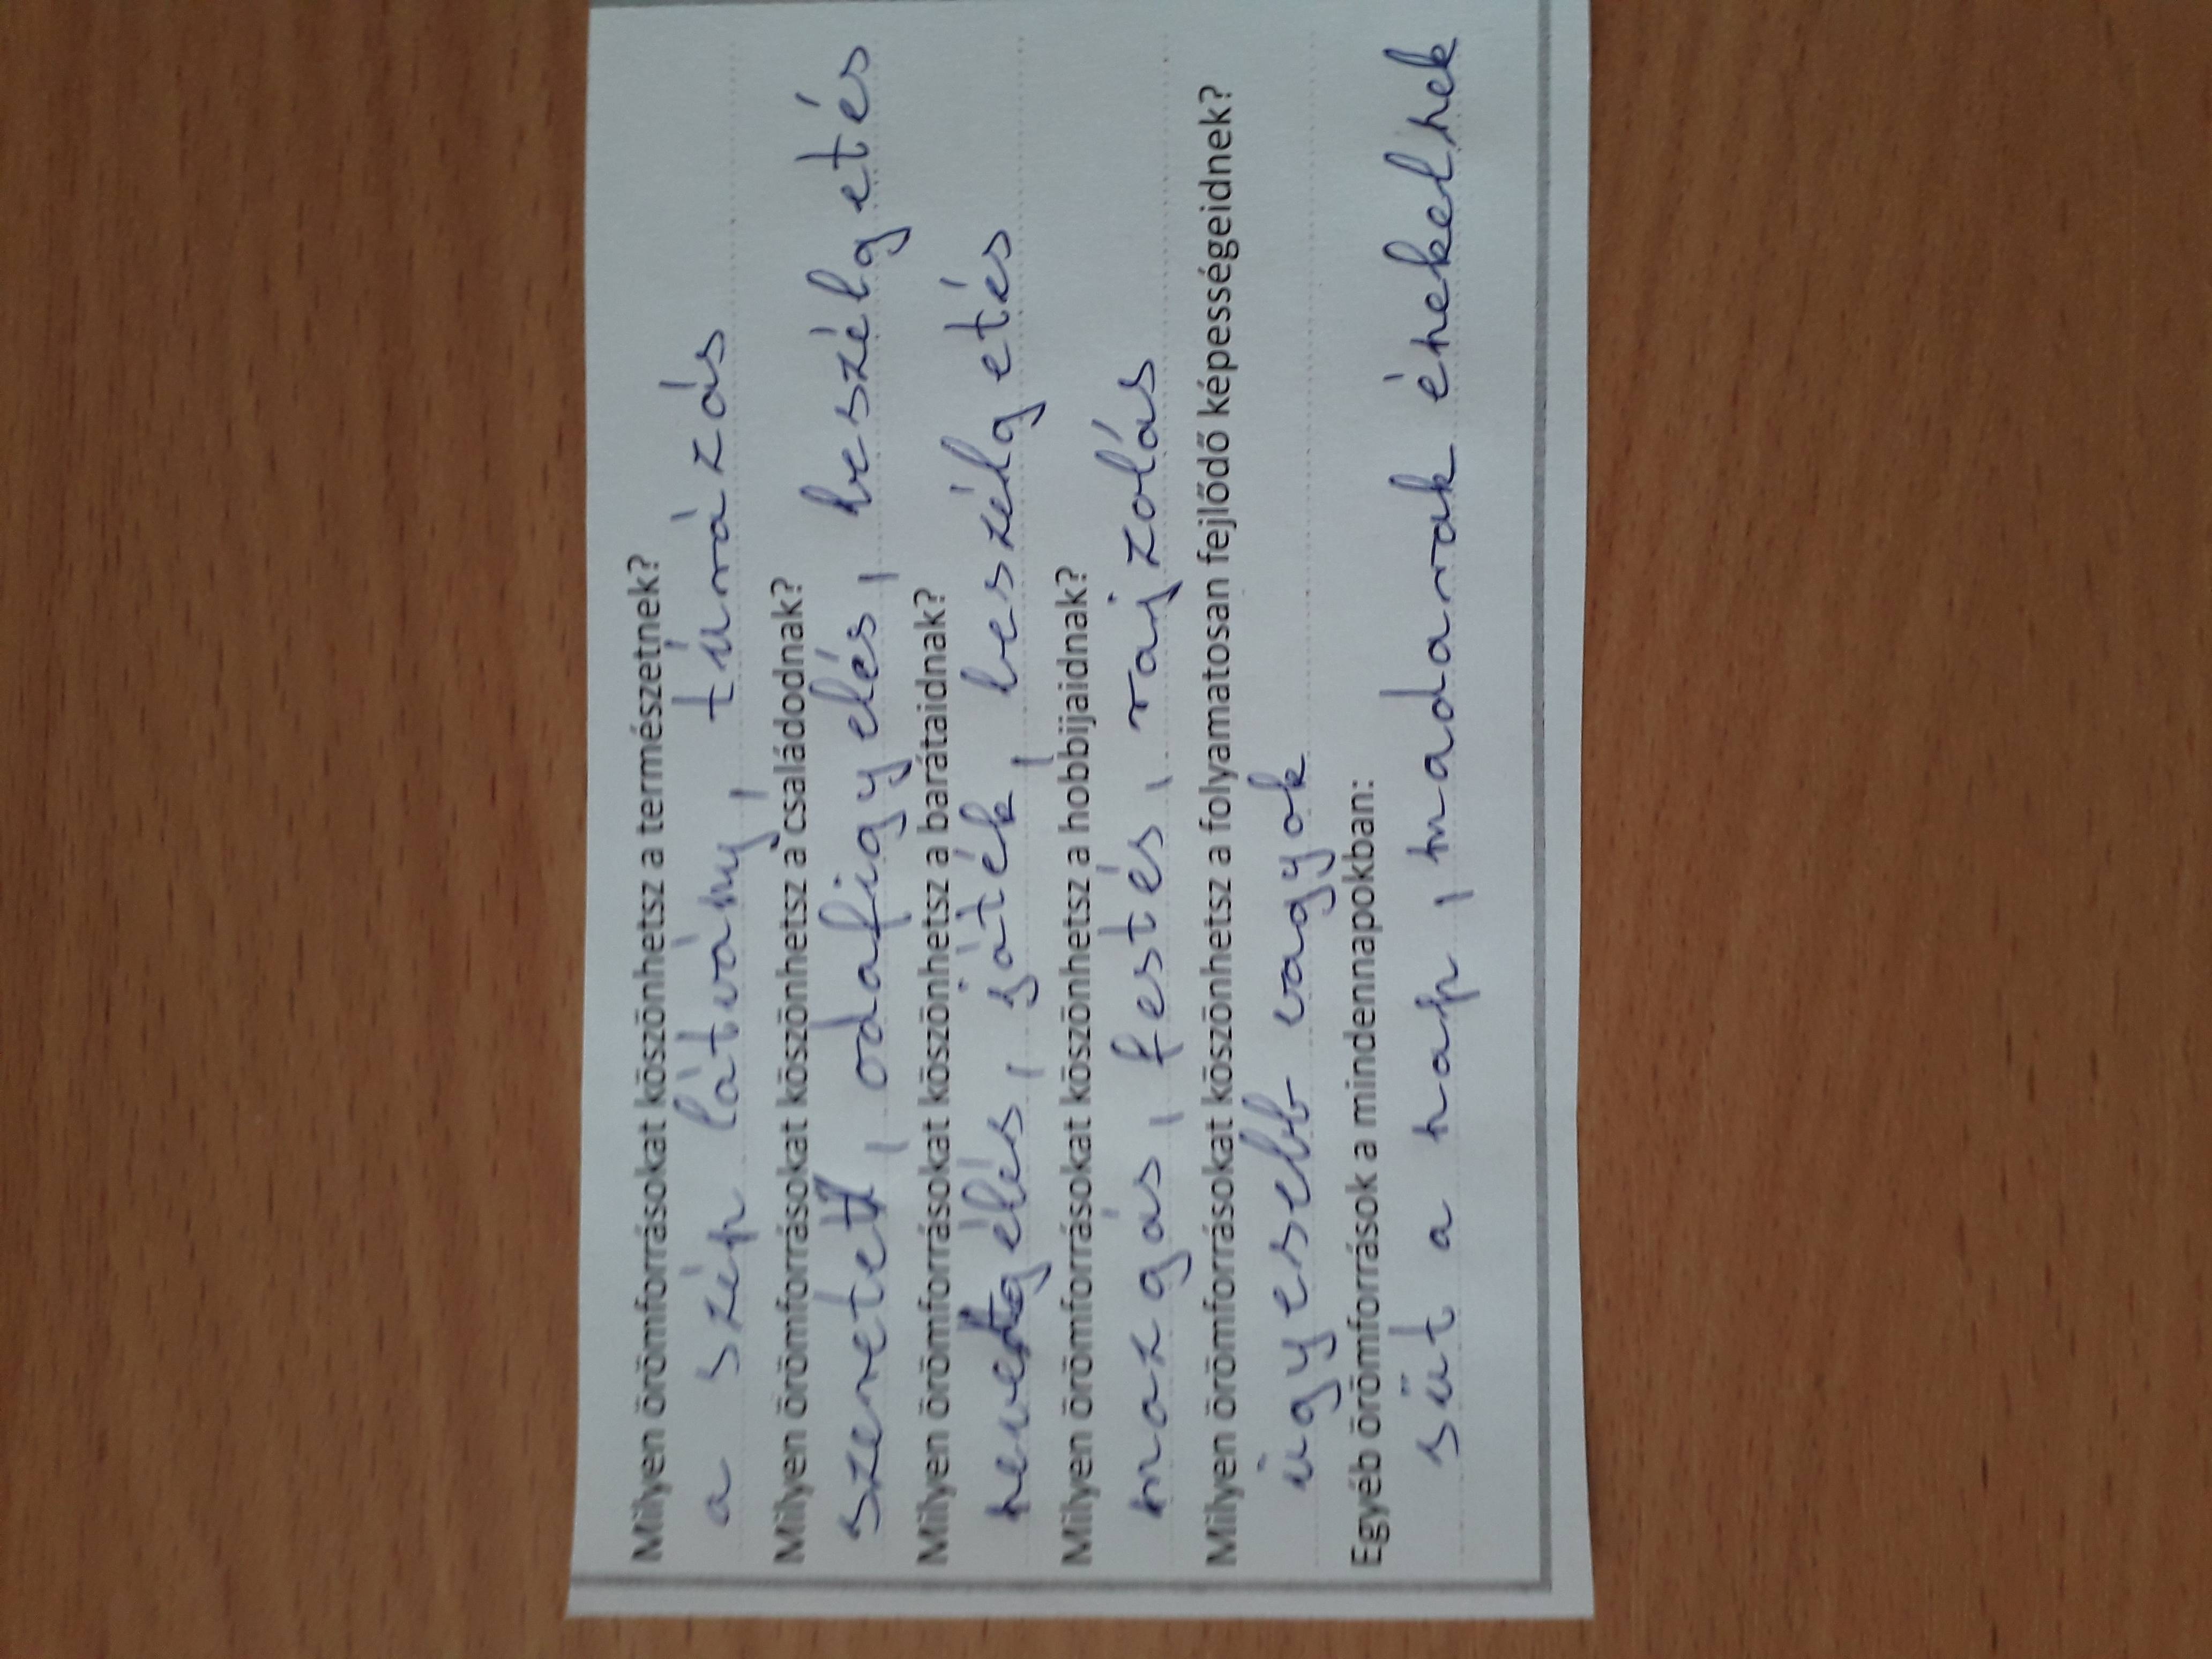 Milyen örömforrásokat köszönhetsz a természetnek?
a szép látvány, túrázás
Milyen örömforrásokat köszönhetsz a családodnak?
szeretet, odafigyelés, beszélgetés
Milyen örömforrásokat köszönhetsz a barátaidnak?
nevetgélés, játék, beszélgetés
Milyen örömforrásokat köszönhetsz a hobbijaidnak?
mozgás, festés, rajzolás
Milyen örömforrásokat köszönhetsz a folyamatosan fejlődő képességeidnek?
ügyesebb vagyok
Egyéb örömforrások a mindennapokban:
süt a nap, madarak énekelnek